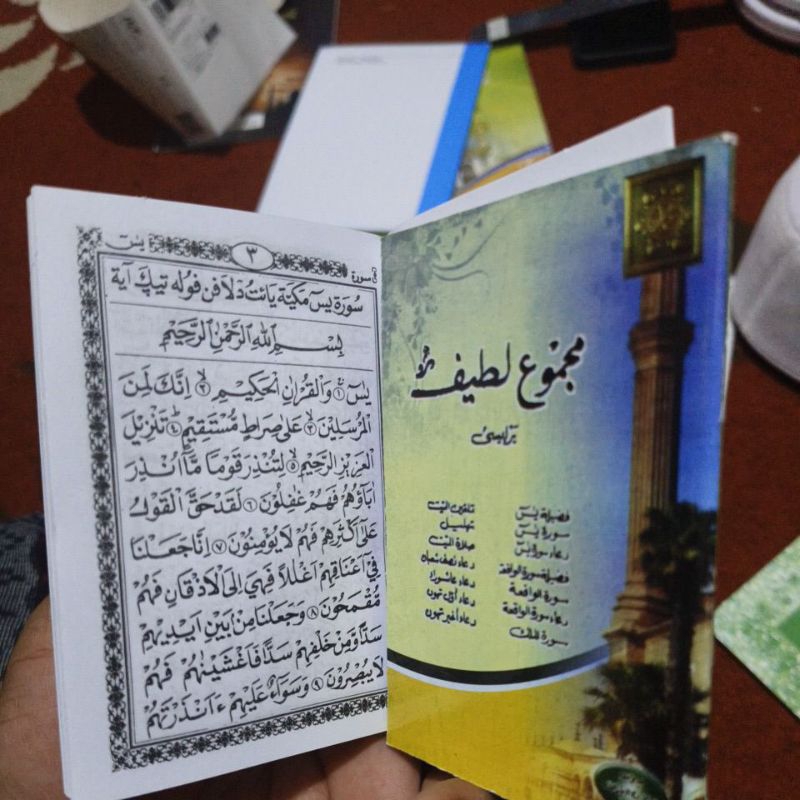 مجموع لطيف
برايسى
فضيلة يس
سورة يس
دعاء سورة يس
فضيلة سورة الواقعة
سورة الواقعة
دعاء سورة الواقعة
سورة الملك
تلقين الميت
تهليل
صلاة الميت
دعاء نصف شعبان
دعاء عاشوراء
دعاء أول تهون
دعاء أخير تهون
سورة ٣ يسٓ
سورة يس مكية يائت دلافن فوله تيݢ آية
بِسْمِ اللهِ الرَّحْمٰنِ الرَّحِيْمِ
يسٓ ۝١ وَالْقُرْاٰنِ الْحَكِيْمِ ۝٢ اِنَّكَ لَمِنَ
الْمُرْسَلِيْنَ ۝٣ عَلٰى صِرَاطٍ مُّسْتَقِيْمٍ ۝٤ تَنْزِيْلَ
الْعَزِيْزِ الرَّحِيْمِ ۝٥ لِتُنْذِرَ قَوْمًا مَّآ اُنْذِرَ
اٰبَاؤُهُمْ فَهُمْ غٰفِلُوْنَ ۝٦ لَقَدْ حَقَّ الْقَوْلُ
عَلٰٓى اَكْثَرِهِمْ فَهُمْ لَا يُؤْمِنُوْنَ ۝٧ اِنَّا جَعَلْنَا
فِيْٓ اَعْنَاقِهِمْ اَغْلٰلًا فَهِيَ اِلَى الْاَذْقَانِ فَهُمْ
مُّقْمَحُوْنَ ۝٨ وَجَعَلْنَا مِنْ بَيْنِ اَيْدِيْهِمْ
سَدًّا وَّمِنْ خَلْفِهِمْ سَدًّا فَاَغْشَيْنٰهُمْ فَهُمْ
لَا يُبْصِرُوْنَ ۝٩ وَسَوَآءٌ عَلَيْهِمْ ءَاَنْذَرْتَهُمْ